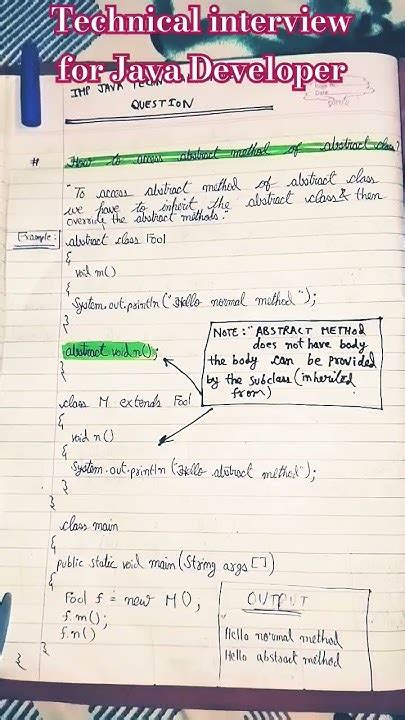 Technical interview
for Java Developer
IMP JAVA TECHN
QUESTION
# How to access abstract method of abstract class?
"To access abstract method of abstract class
we have to inherit the abstract class & then
override the abstract methods."
Example:
abstract class Fool
{
void m()
{
System.out.println ("Hello normal method");
}
abstract void n();
}
NOTE: "ABSTRACT METHOD
does not have body
the body can be provided
by the subclass (inherited
from)
class M extends Fool
{
void n()
{
System.out.println ("Hello abstract method");
}
}
class main
{
public static void main (String args [])
{
Fool f = new M();
f.m();
f.n()
}
OUTPUT
Hello normal method
Hello abstract method